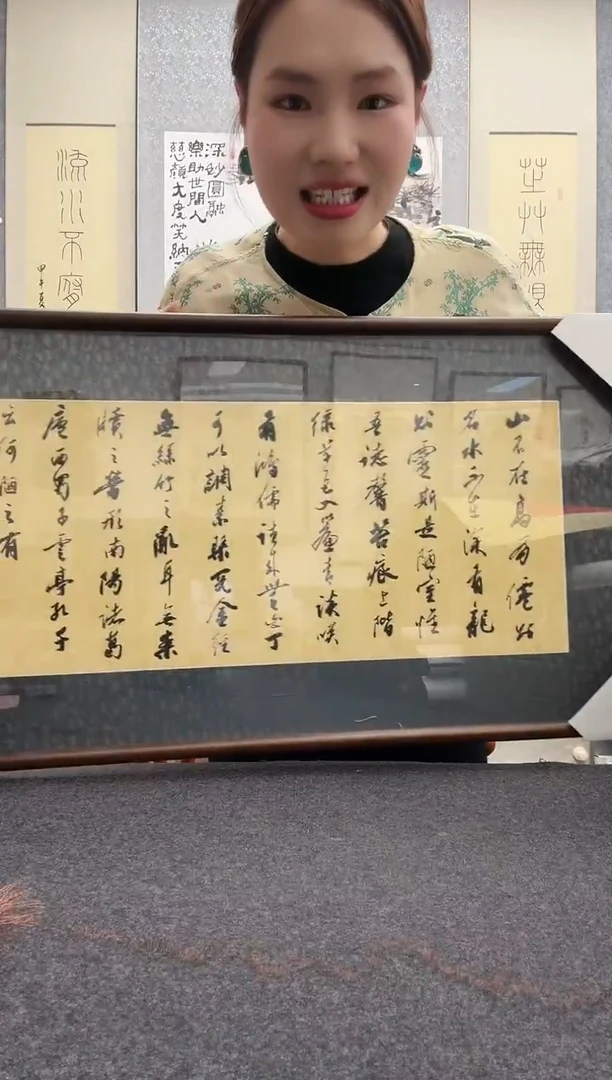 深妙圓融
樂助世間人
慈顏大度笑納
流水不
甲午夏
山不在高有僊則
名水不在深有龍
則靈斯是陋室惟
吾德馨苔痕上階
綠草色入簾青談咲
有鴻儒往來無白丁
可以調素琴閱金經
無絲竹之亂耳無案
牘之勞形南陽諸葛
廬西蜀子雲亭孔子
云何陋之有